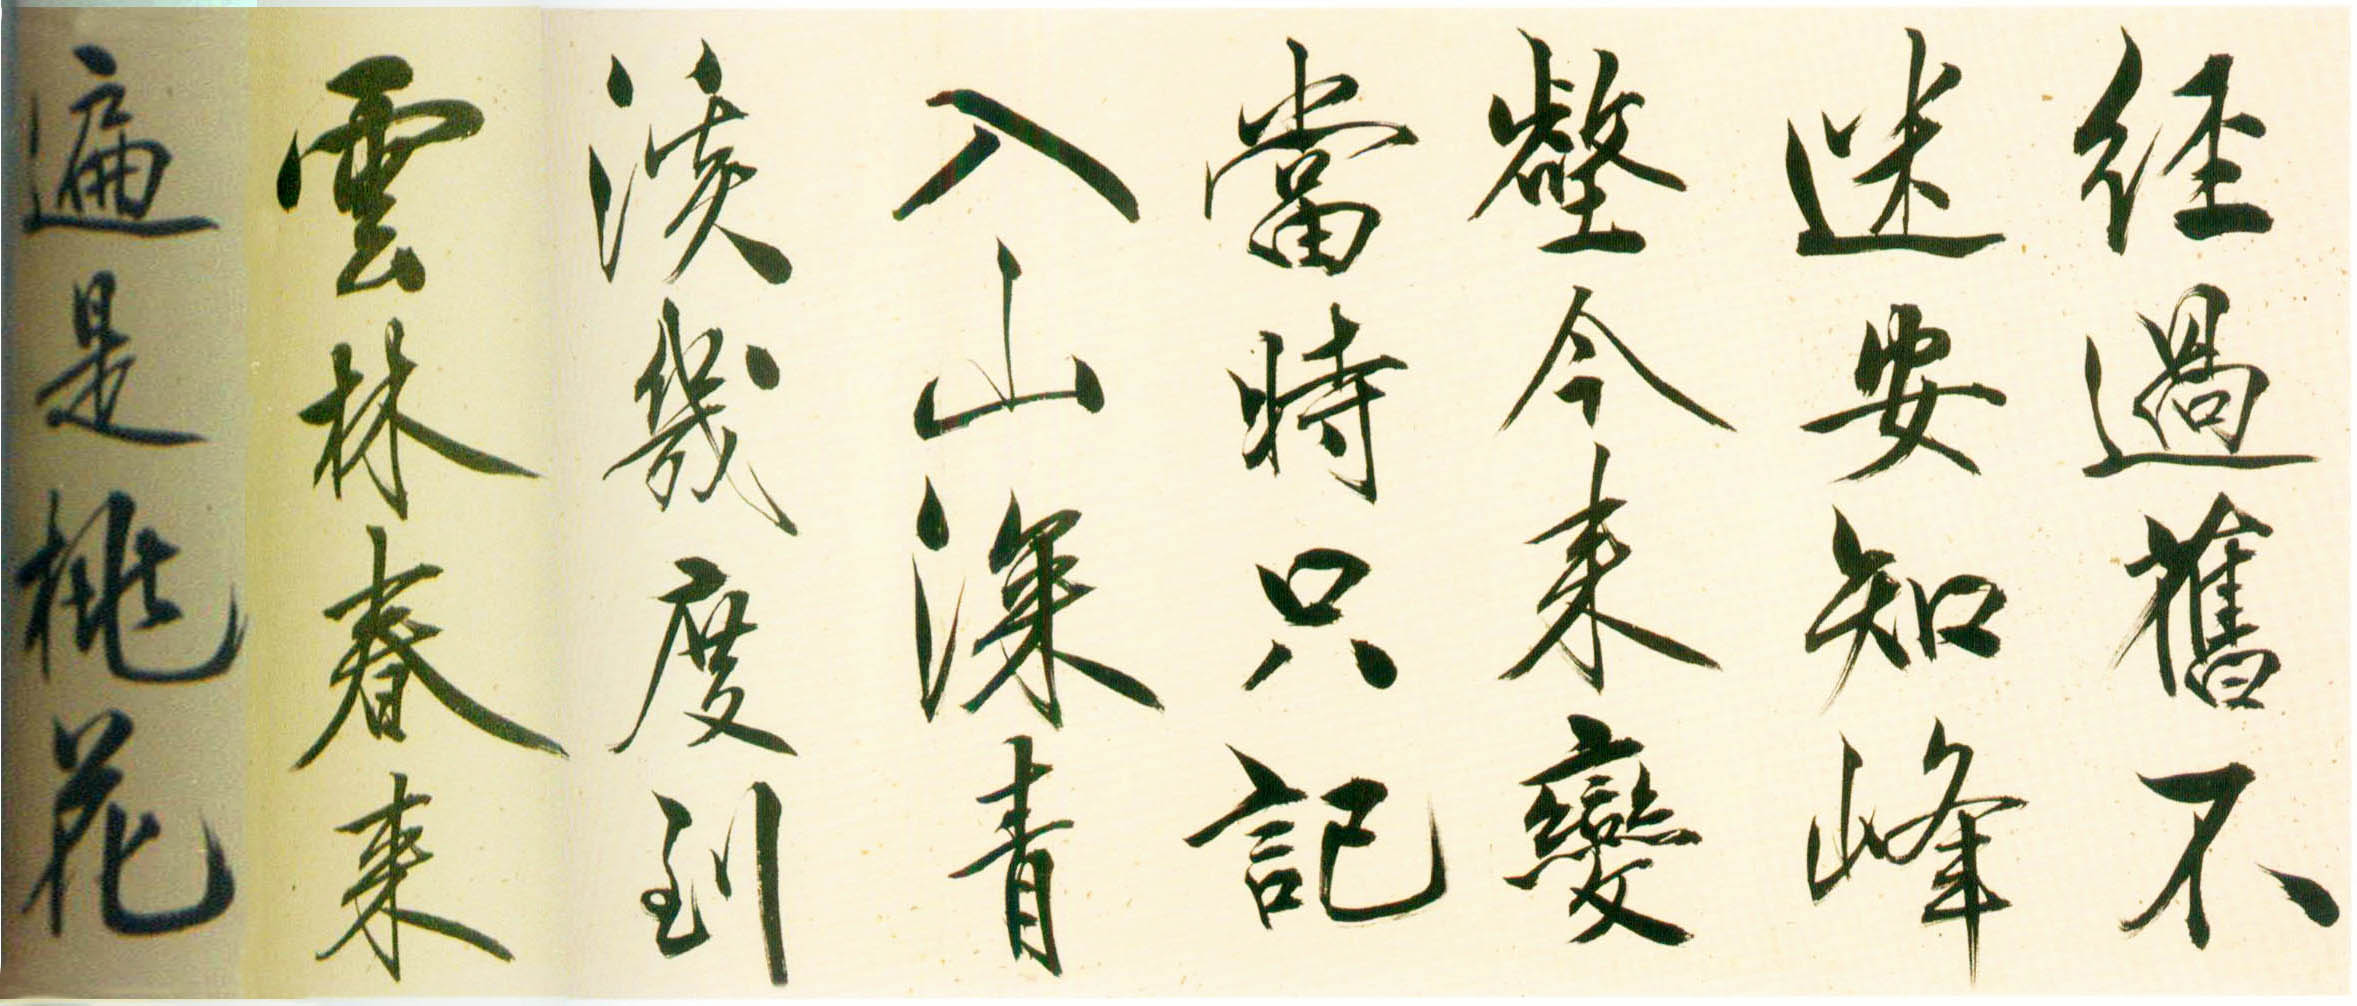 経過舊不
迷安知峰
壑今来變
當時只記
入山深青
溪幾度到
雲林春来
遍是桃花